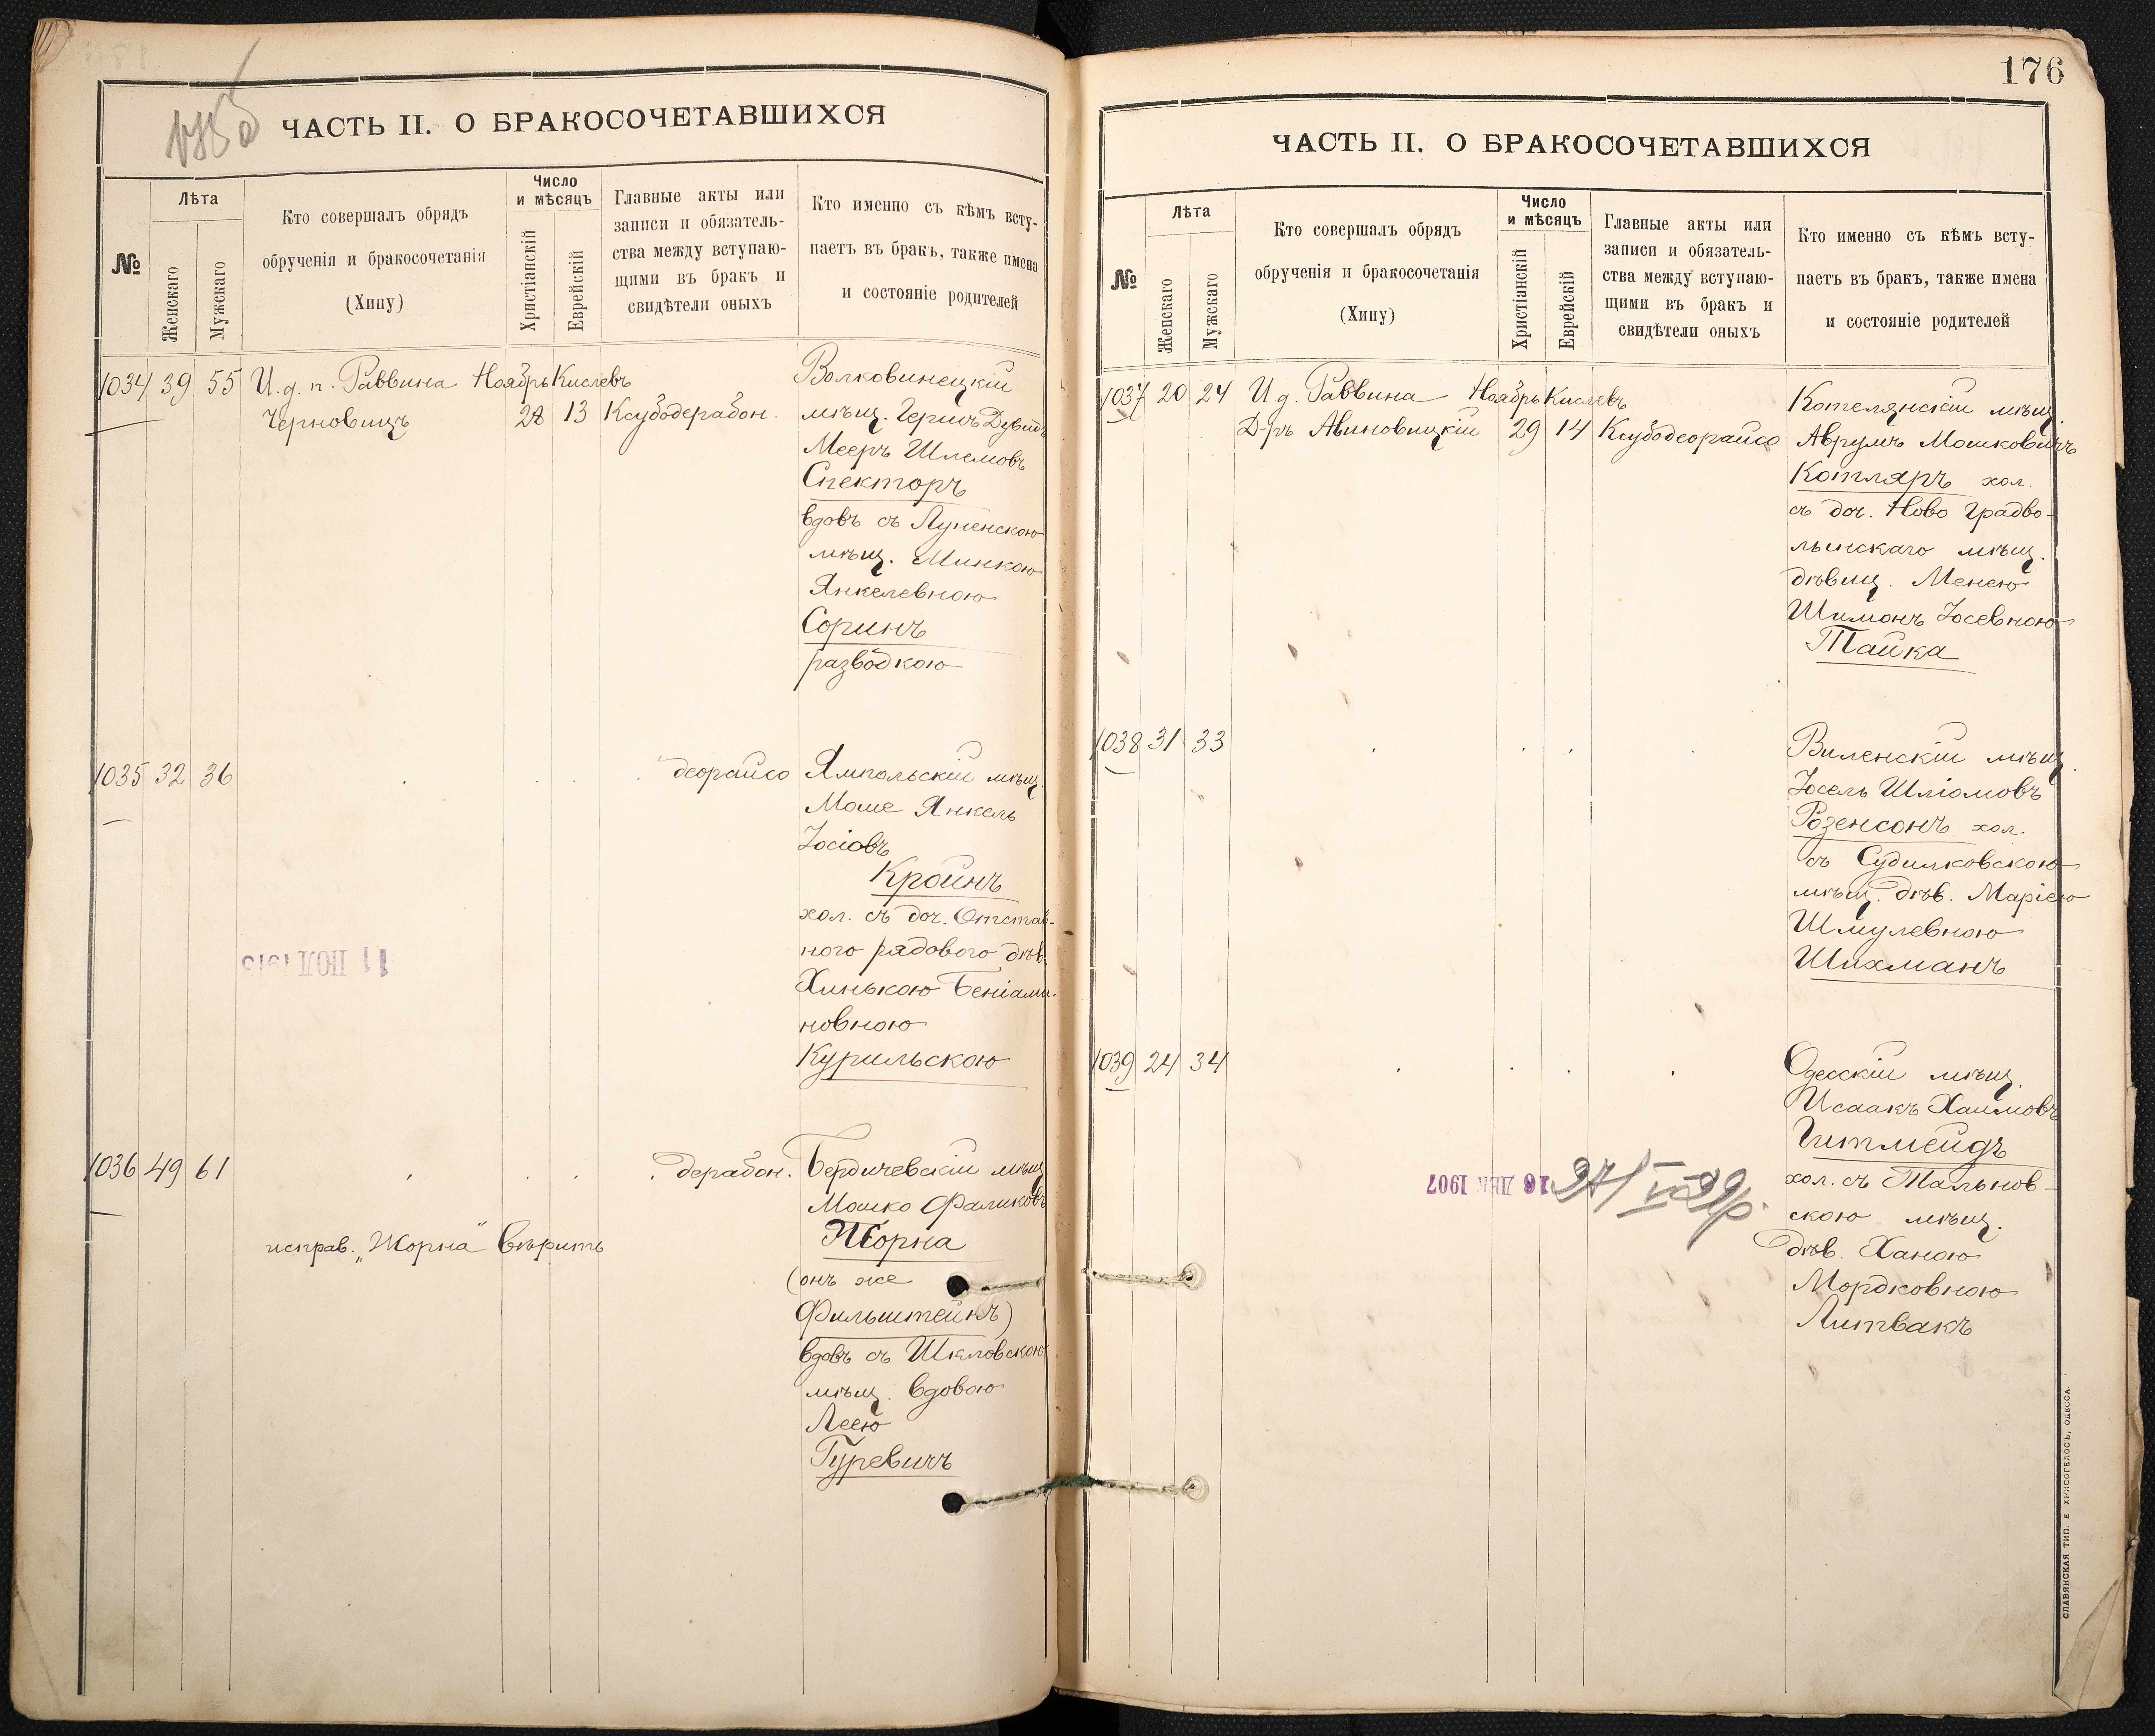 ЧАСТЬ II. О БРАКОСОЧЕТАВШИХСЯ
№
Лѣта
Женскаго
Мужскаго
Кто совершалъ обрядъ
обрученія и бракосочетанія
(Хипу)
Число
и мѣсяцъ
Христіанскій
Еврейскій
Главные акты или
записи и обязатель-
ства между вступаю-
щими въ бракъ и
свидѣтели оныхъ
Кто именно съ кѣмъ всту-
паетъ въ бракъ, также имена
и состояніе родителей
1034 39 55 И. д. п. Раввина Ноябрь Кислевъ
Черновицъ 28 13 Ксубодерабон.
Волковинецкій
мѣщ. Гершъ Дувидъ
Мееръ Шлемовъ
Спекторъ
вдовъ съ Лупенскою
мѣщ. Минкою
Янкелевною
Соринъ
разводкою
1035 32 36 деорайсо
Ямпольскій мѣщ.
Моше Янкель
Іосіовъ
Кройнъ
хол. съ доч. Отстав-
ного рядового дѣв.
Хинькою Беніами-
новною
Курильскою
11 ІЮЛ 1915
1036 49 61 дерабон.
Бердичевскій мѣщ.
Мошко Фаликовъ
Жорна
исправ. „Жорна" вѣрить
(онъ же
Фильштейнъ)
вдовъ съ Шкловскою
мѣщ. вдовою
Леею
Гуревичъ
176
ЧАСТЬ II. О БРАКОСОЧЕТАВШИХСЯ
№
Лѣта
Женскаго
Мужскаго
Кто совершалъ обрядъ
обрученія и бракосочетанія
(Хипу)
Число
и мѣсяцъ
Христіанскій
Еврейскій
Главные акты или
записи и обязатель-
ства между вступаю-
щими въ бракъ и
свидѣтели оныхъ
Кто именно съ кѣмъ всту-
паетъ въ бракъ, также имена
и состояніе родителей
1037 20 24 И д. Раввина Ноябрь Кислевъ
Д-ръ Авиновицкій 29 14 Ксубодеорайсо
Котелянскій мѣщ.
Аврумъ Мошковичъ
Котляръ хол.
съ доч. Ново Градво-
лынскаго мѣщ.
дѣвиц. Менею
Шимонъ Іосевною
Тайка
1038 31 33
Виленскій мѣщ.
Іосель Шліомовъ
Розенсонъ хол.
съ Судилковскою
мѣщ. дѣв. Маріею
Шмулевною
Шихманъ
1039 24 34
Одесскій мѣщ.
Исаакъ Хаимовъ
Гитмейдъ
хол. съ Тальнов-
скою мѣщ.
дѣв. Ханою
Мордковною
Литвакъ
16 ДЕК 1907
СЛАВЯНСКАЯ ТИП. Е ХРИСОГЕЛОСЪ, ОДЕССА.